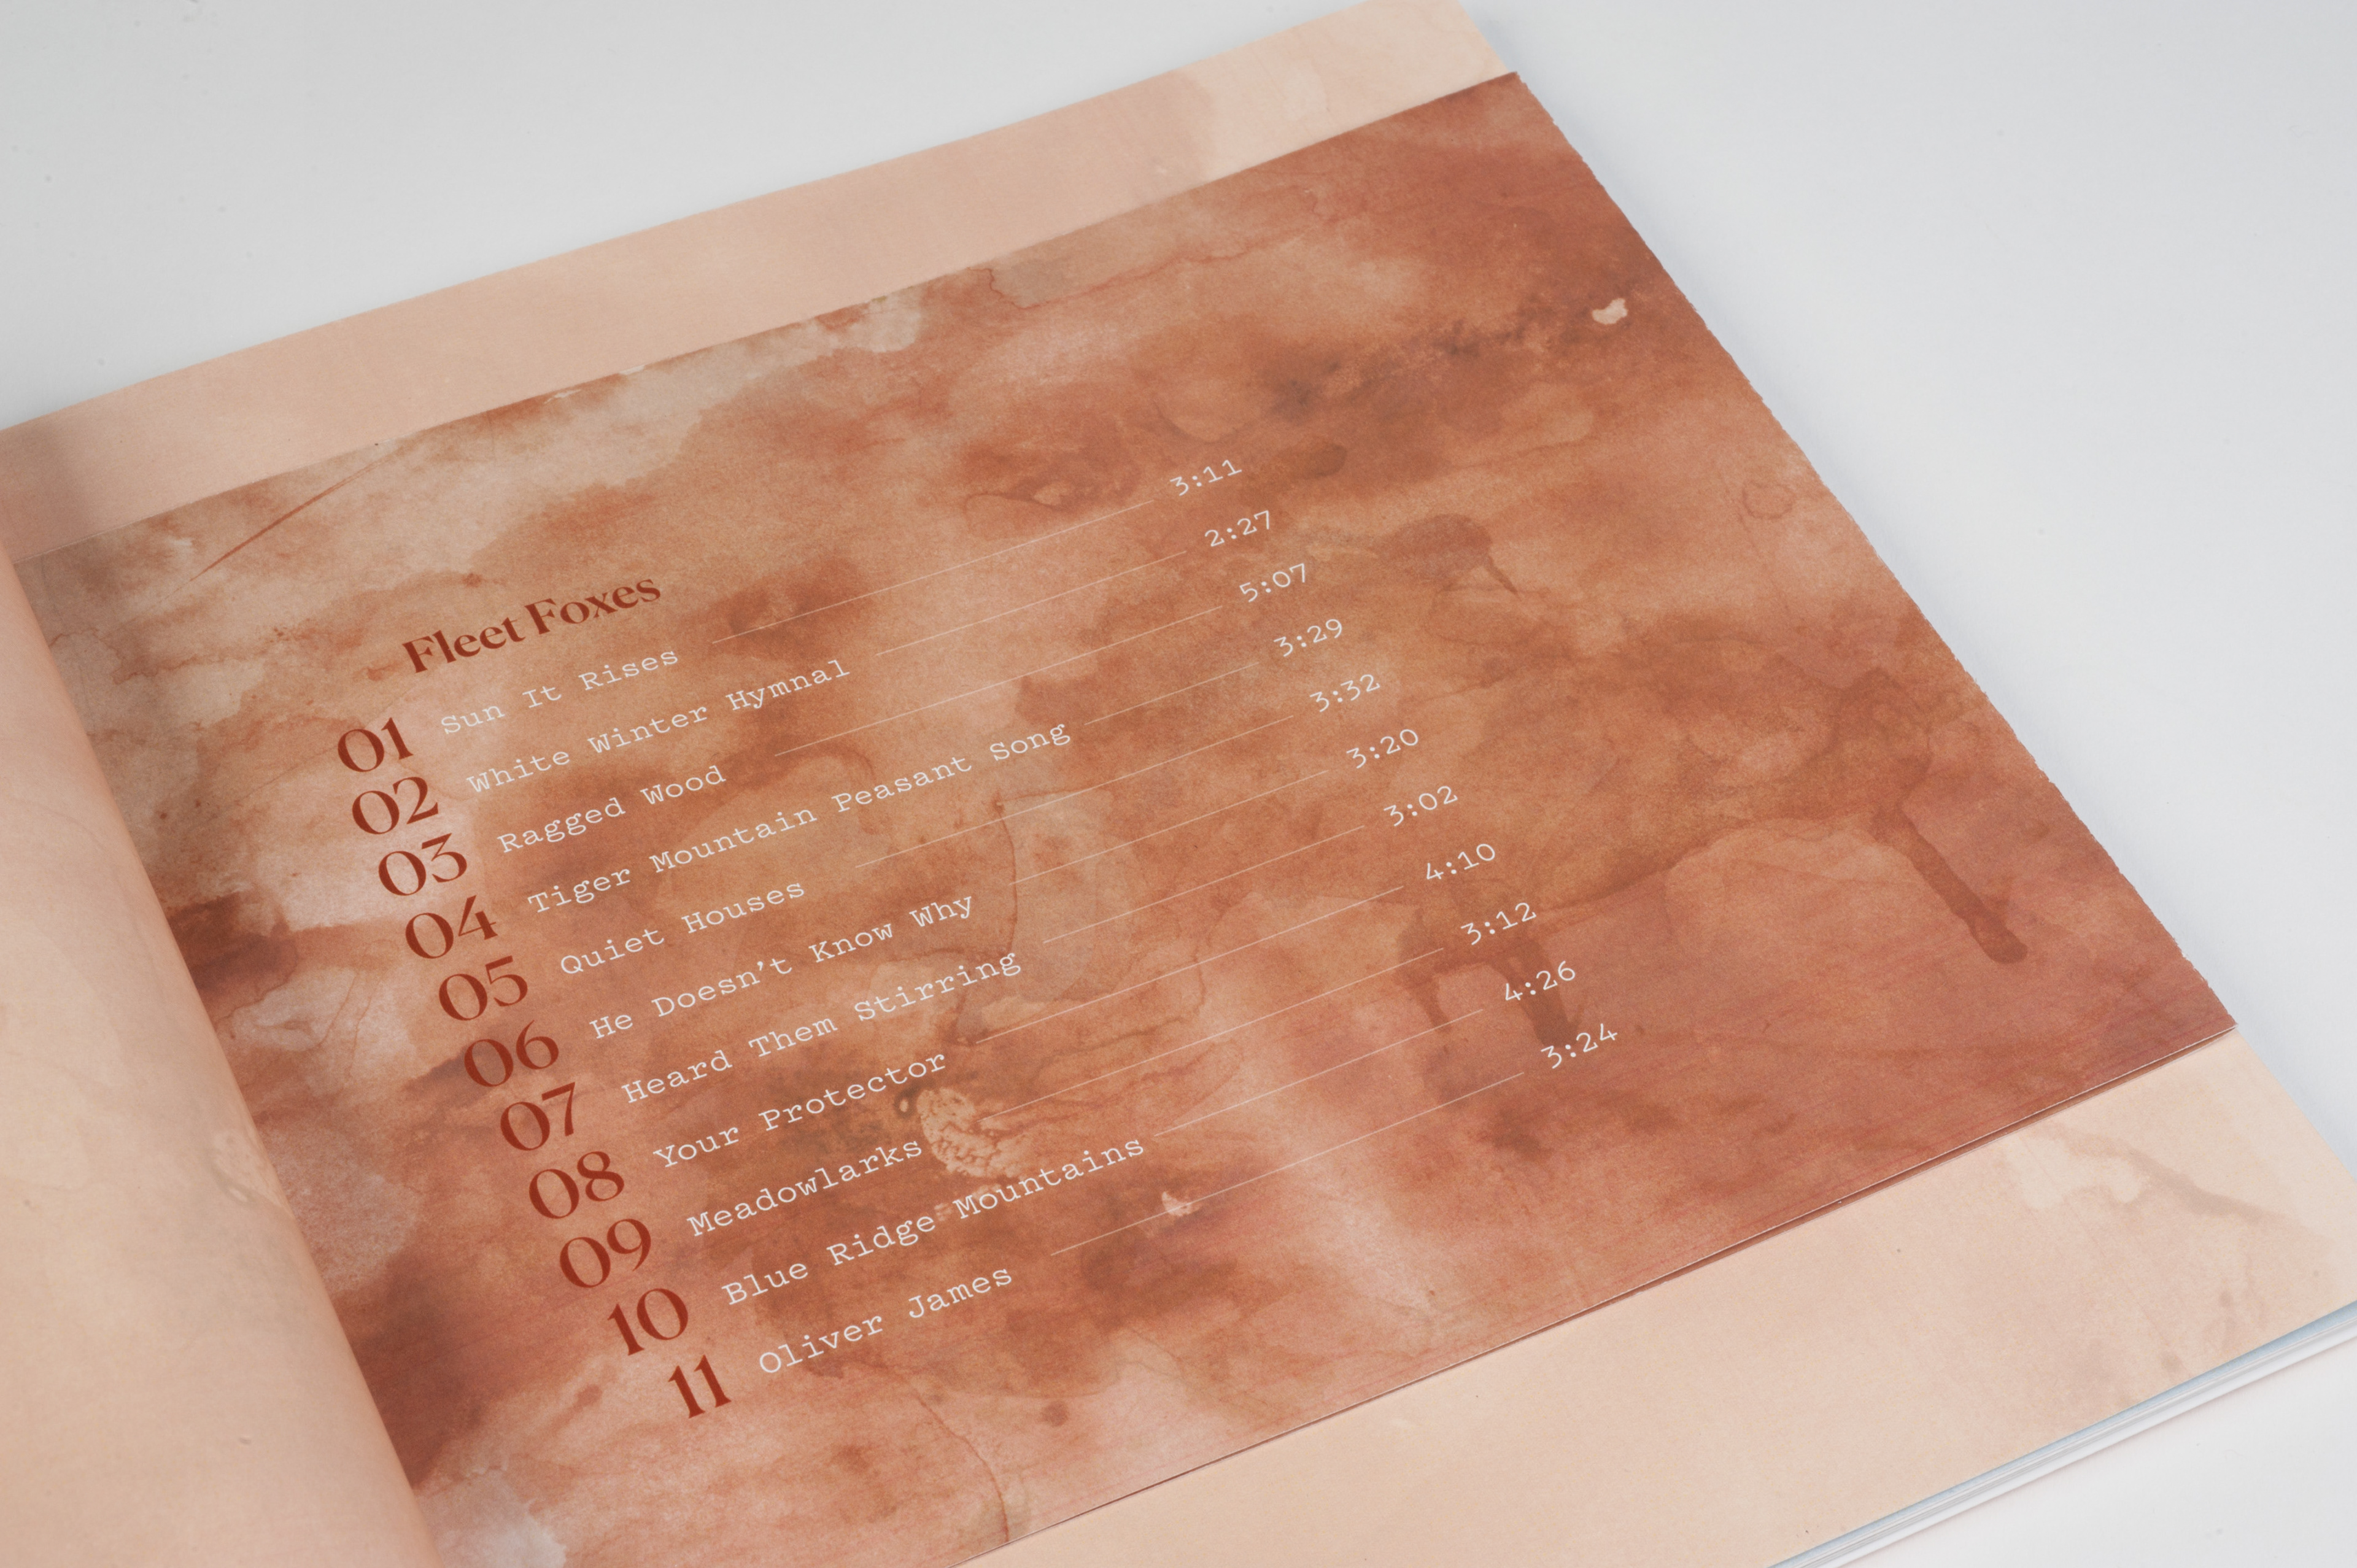 Fleet Foxes
01 Sun It Rises 3:11
02 White Winter Hymnal 2:27
03 Ragged Wood 5:07
04 Tiger Mountain Peasant Song 3:29
05 Quiet Houses 3:32
06 He Doesn’t Know Why 3:20
07 Heard Them Stirring 3:02
08 Your Protector 4:10
09 Meadowlarks 3:12
10 Blue Ridge Mountains 4:26
11 Oliver James 3:24